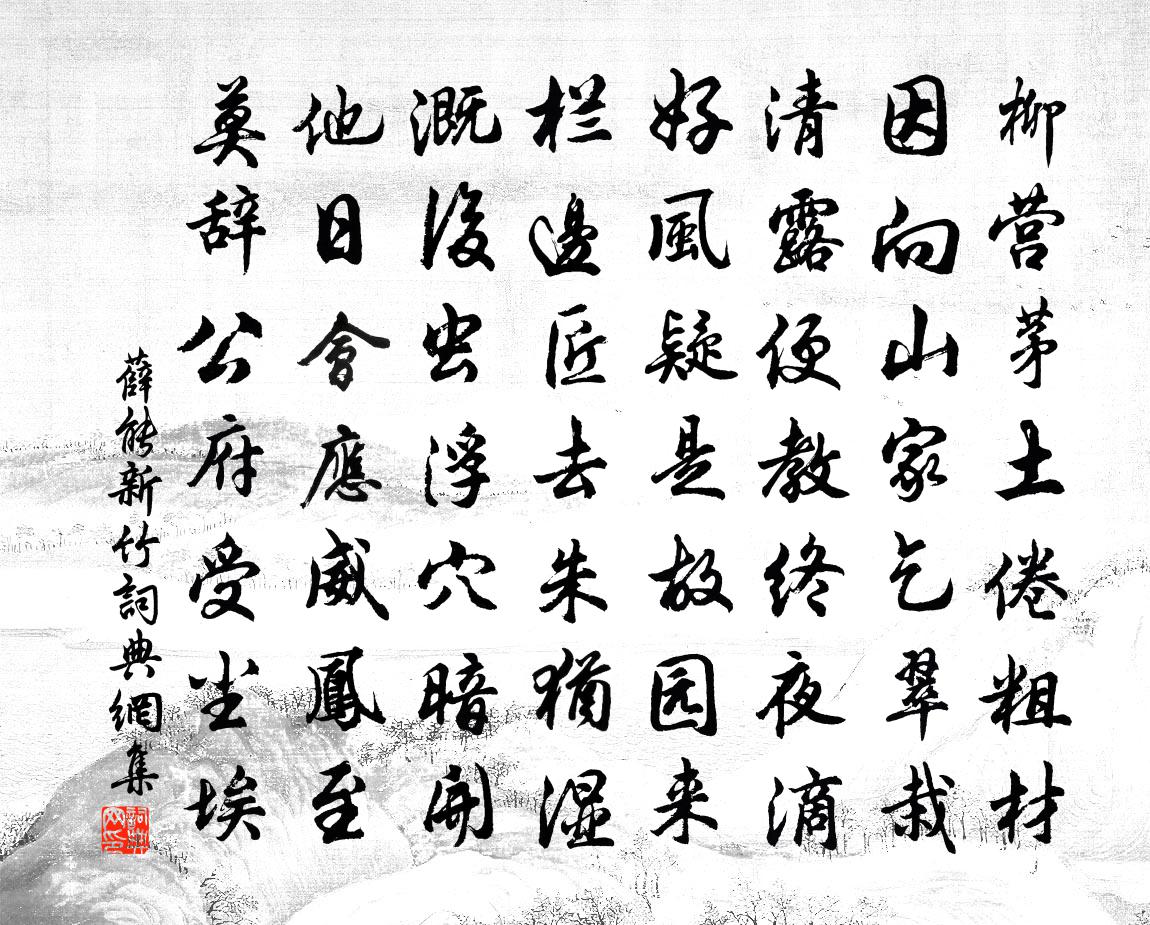 柳营茅土倦粗材
因向山家乞翠栽
清露便教终夜滴
好風疑是故园来
栏邊匠去朱猶湿
溉後虫浮穴暗開
他日會應威鳳至
莫辞公府受尘埃
薛能新竹詞典網集